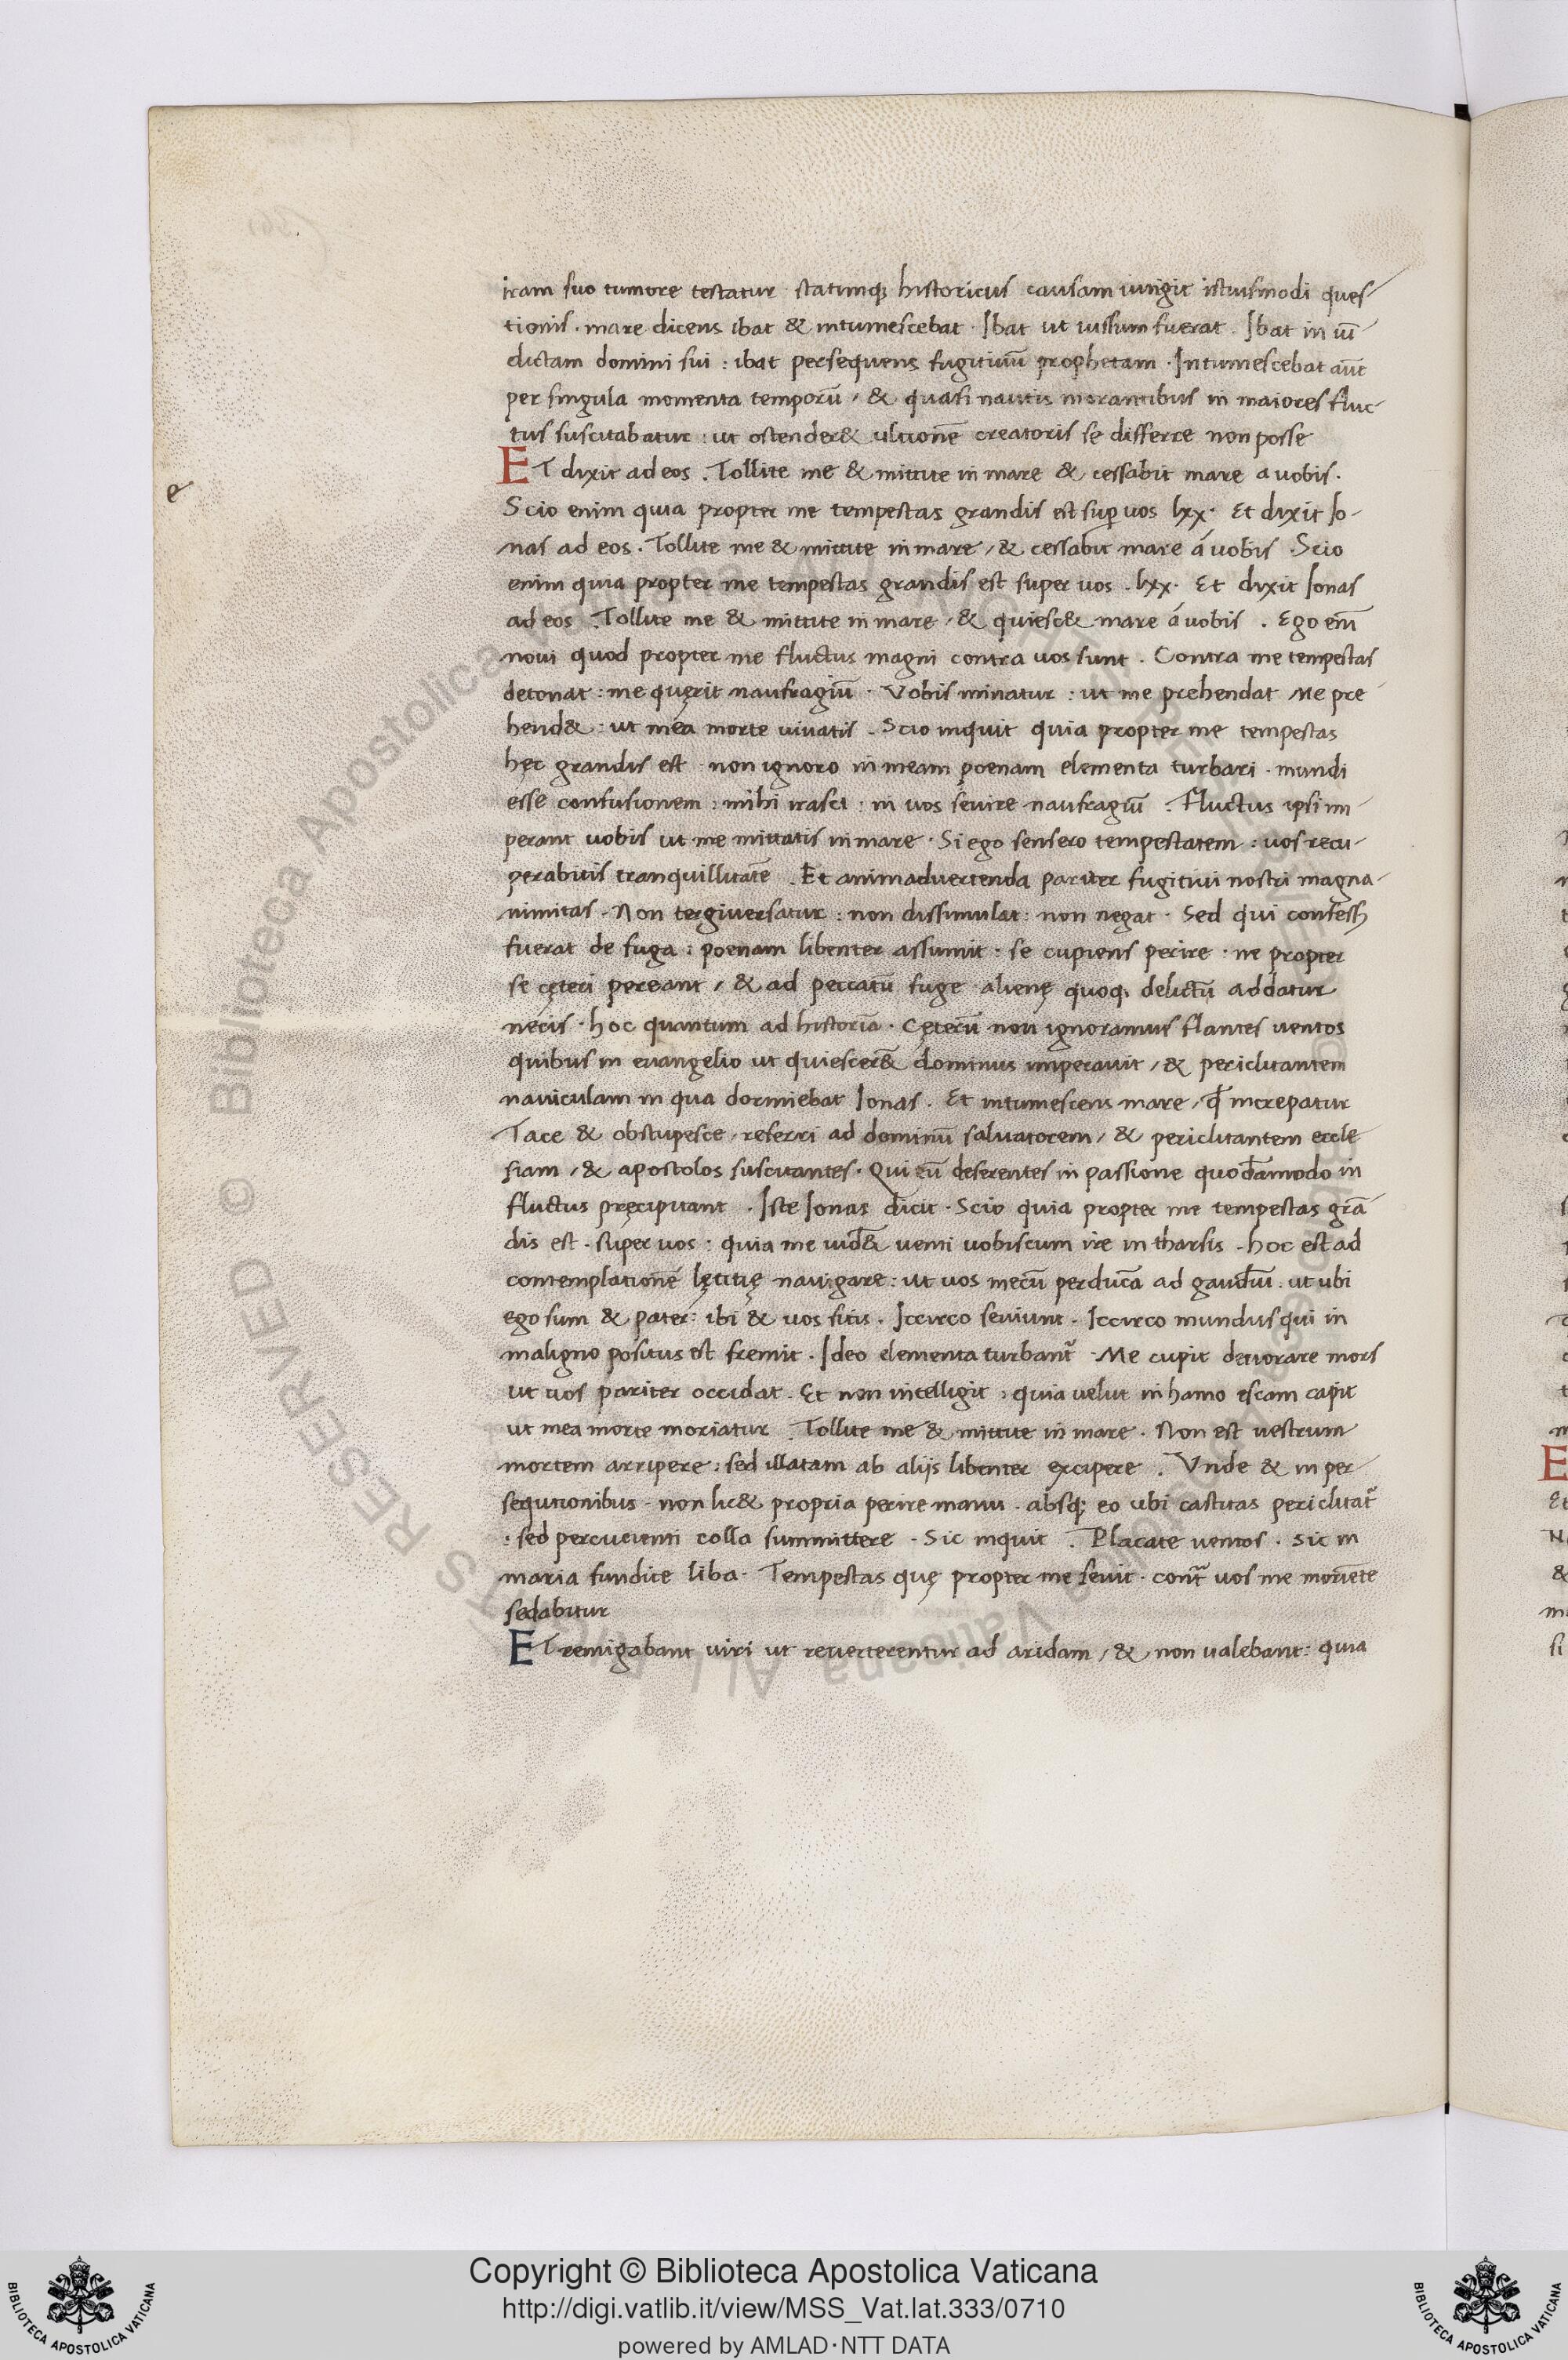 iram suo tumore testatur · statimq; historicus causam iungit istiusmodi ques
tionis · mare dicens ibat & intumescebat · Ibat ut iussum fuerat . Ibat in uī
dictam domini sui : ibat persequens fugitiuū prophetam · Intumescebat aūt
per singula momenta temporū / & quasi nautis morantibus in maiores fluc-
tus suscitabatur : ut ostender& ultionē creatoris se differre non posse
ET dixit ad eos . Tollite me & mittite in mare & cessabit mare a uobis .
e
Scio enim quia propter me tempestas grandis est sup uos lxx · Et dixit Io-
nas ad eos . Tollite me & mittite in mare / & cessabit mare á uobis . Scio
enim quia propter me tempestas grandis est super uos . lxx · Et dixit Ionas
ad eos . Tollite me & mittite in mare / & quiesc& mare á uobis . Ego eīm
noui quod propter me fluctus magni contra uos sunt . Contra me tempestas
detonat : me quęrit naufragiū · Vobis minatur : ut me prehendat Me pre
hend& : ut mea morte uiuatis . Scio inquit quia propter me tempestas
hęc grandis est · non ignoro in meam poenam elementa turbari · mundi
esse confusionem : mihi irasci : in uos seuire naufragiū . Fluctus ipsi im-
perant uobis ut me mittatis in mare · Si ego sensero tempestatem : uos recu-
perabitis tranquillitatē . Et animaduertenda pariter fugitiui nostri magna-
nimitas . Non tergiuersatur : non dissimulat : non negat · Sed qui confess;
fuerat de fuga : poenam libenter assumit : se cupiens perire · ne propter
se cęteri pereant / & ad peccatū fuge alienę quoq; delictū addatur
necis · hoc quantum ad historiā · Cęterū non ignoramus flantes uentos
quibus in euangelio ut quiescer& dominus imperauit / & periclitantem
nauiculam in qua dormiebat Ionas . Et intumescens mare / q̄ increpatur
Tace & obstupesce / referri ad dominū saluatorem / & periclitantem eccle
siam / & apostolos suscitantes · Qui eū deserentes in passione quodāmodo in
fluctus pręcipitant . Iste Ionas dicit · Scio quia propter me tempestas grā
dis est . super uos : quia me uid& uenti uobiscum ire in tharsis . hoc est ad
contemplationē lętitię nauigare : ut uos mecū perducā ad gaudiū . ut ubi
ego sum & pater : ibi & uos sitis . Iccirco seuiunt . Iccirco mundus qui in
maligno positus est fremit . Ideo elementa turbant᷑ . Me cupit deuorare mors
ut uos pariter occidat . Et non intelligit : quia uelut in hamo escam capit
ut mea morte moriatur . Tollite me & mittite in mare . Non est uestrum
mortem arripere : sed illatam ab aliis libenter excipere . Vnde & in per
sequtionibus · non lic& propria perire manu . absq; eo ubi castitas periclitat᷑
: sed percucienti colla summittere . Sic inquit . Placate uentos . sic in
maria fundite liba . Tempestas quę propter me seuit . cont̄ uos me moriēte
sedabitur
ET remigabant uiri ut reuerterentur ad aridam / & non ualebant : quia
Copyright © Biblioteca Apostolica Vaticana
http://digi.vatlib.it/view/MSS_Vat.lat.333/0710
powered by AMLAD·NTT DATA